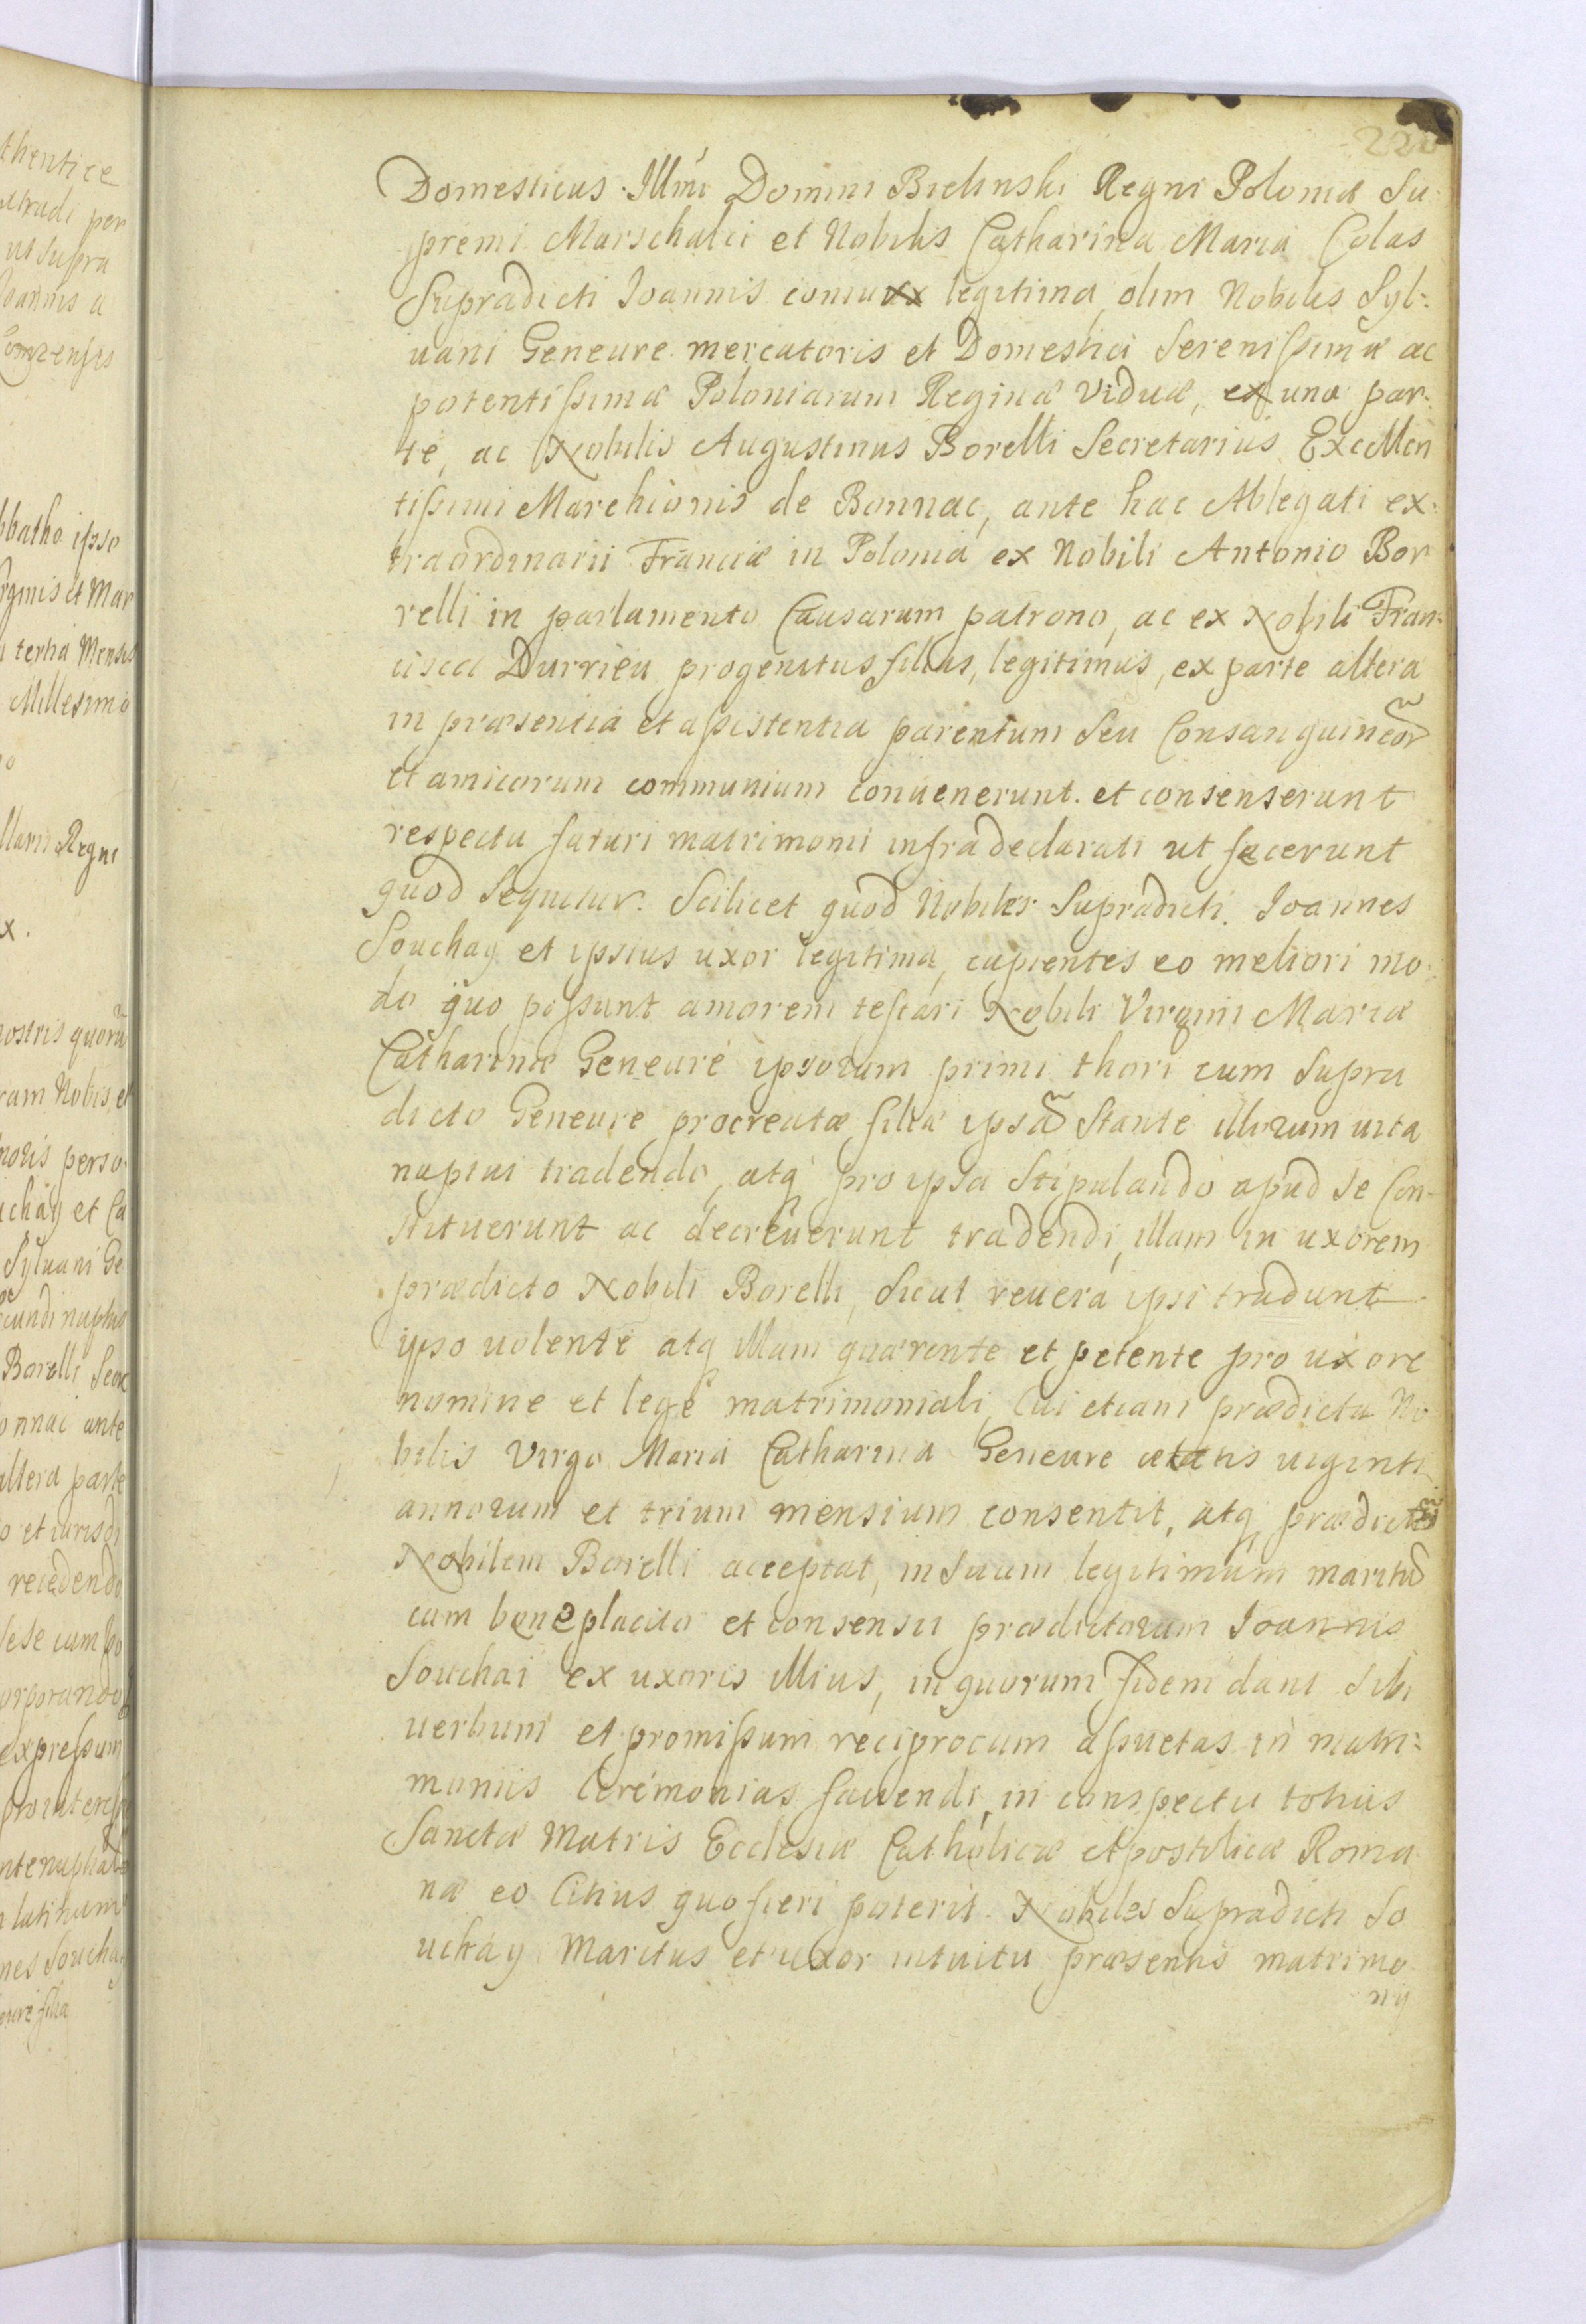 220
Domesticus Illmi Domini Bielinski Regni Poloniæ Su-
premi Marschalci et Nobilis Catharina Maria Colas
Supradicti Joannis coniuxx legitima, olim Nobilis Syl:
uani Geneure mercatoris et Domestici Serenissimæ ac
potentissimæ Poloniarum Reginæ Viduæ, ex una par:
te, ac Nobilis Augustinus Borelli Secretarius Excellen
tissimi Marchionis de Bonnac, ante hac Ablegati ex:
traordinarii Franciæ in Polonia ex Nobili Antonio Bor
relli in parlamento Causarum patrono, ac ex Nobili Fran:
cisca Durrieu progenitus filius, legitimus, ex parte altera
in præsentia et assistentia parentum Seu Consanguineor̃
et amicorum communium conuenerunt. et consenserunt
respectu futuri matrimonii infradeclarati ut fecerunt
quod Sequitur. Scilicet quod Nobiles Supradicti Joannes
Souchay et ipsius uxor legitima, cupientes eo meliori mo:
do quo possunt amorem testari Nobili Virgini Mariæ
Catharinæ Geneure ipsorum primi thori cum Supra
dicto Geneure procreatæ filiæ ipsã Stante illorum uita
nuptui tradendo, atq pro ipsa Stipulando apud se Con-
stituerunt ac decreuerunt tradendi, illam in uxorem
prædicto Nobili Borelli, Sicut reuera ipsi tradunt
ipso uolente atq illam quærente et petente pro uxore
nomine et lege matrimoniali, Cui etiam prædicta No
bilis Virgo Maria Catharina Geneure ætatis uiginti
annorum et trium mensium consentit, atq prædictũ
Nobilem Borelli acceptat, in Suum legitimum maritũ
cum beneplacito et consensu prædictorum Joannis
Souchai ex uxoris illius, in quorum fidem dant Sibi
uerbum et promissum reciprocum assuetas in matri:
moniis Ceremonias fauendi, in conspectu totius
Sanctæ Matris Ecclesiæ Catholicæ Apostolicæ Roma
næ eo Citius quo fieri poterit. Nobiles Supradicti So
uchay Maritus et uxor intuitu præsentis matrimo
nij